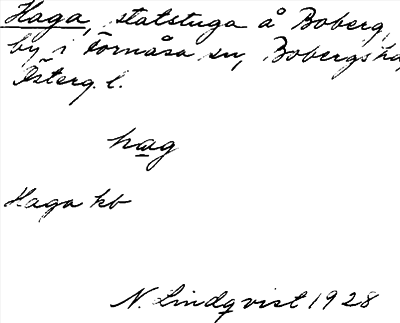 Haga, statstuga å Boberg,
by i Fornåsa sn, Bobergs hd,
Österg. l.
hag
Haga kb
N. Lindqvist 1928